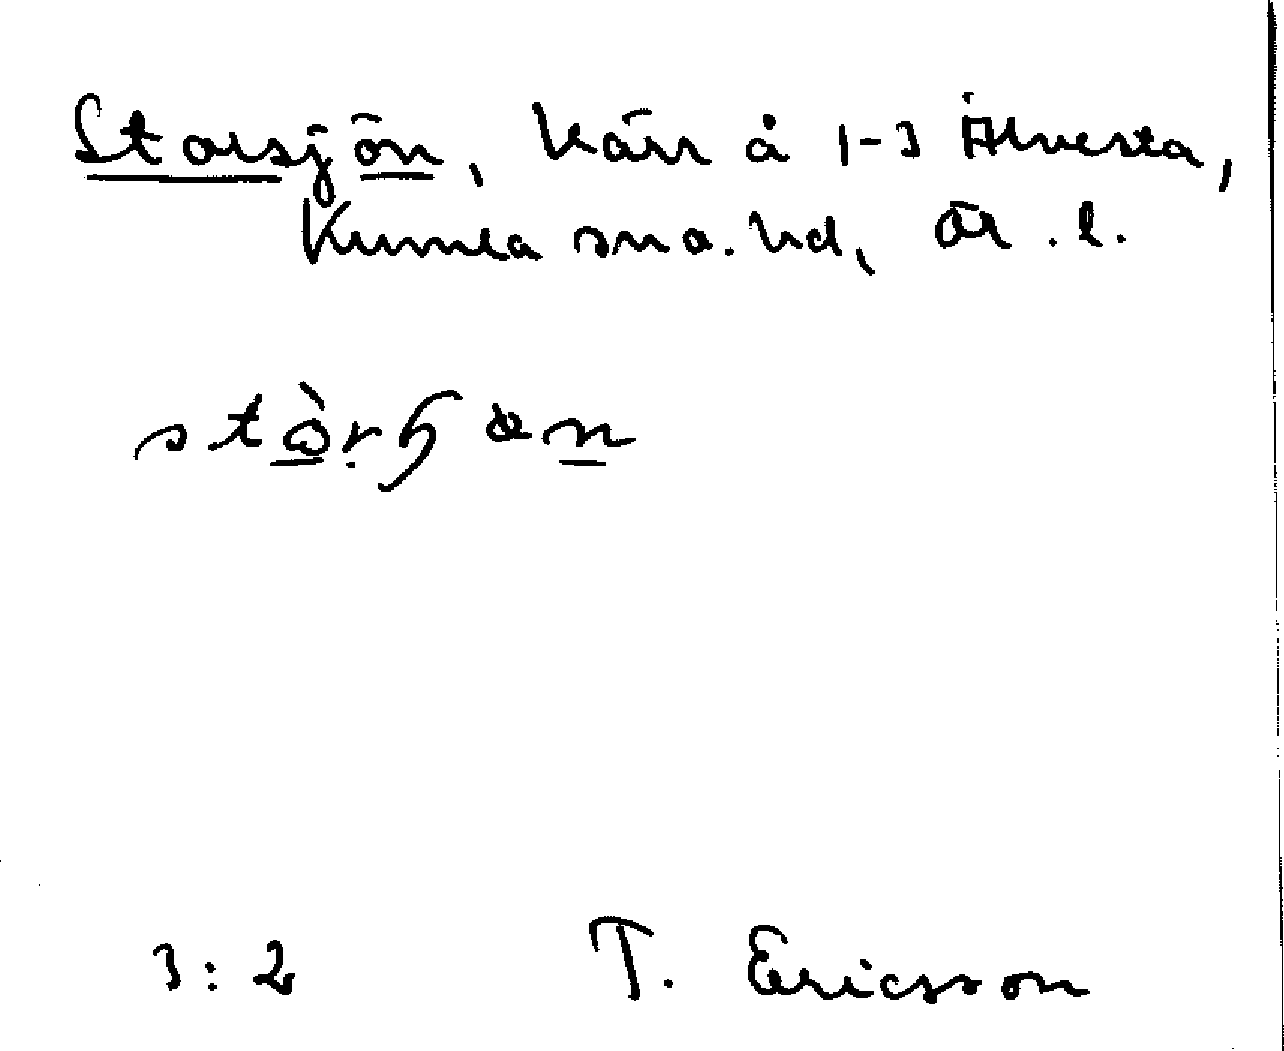 Storsjön, kärr å 1-3 Älvesta,
Kumla sn o. hd, Ör. l.
3:2 T. Ericsson